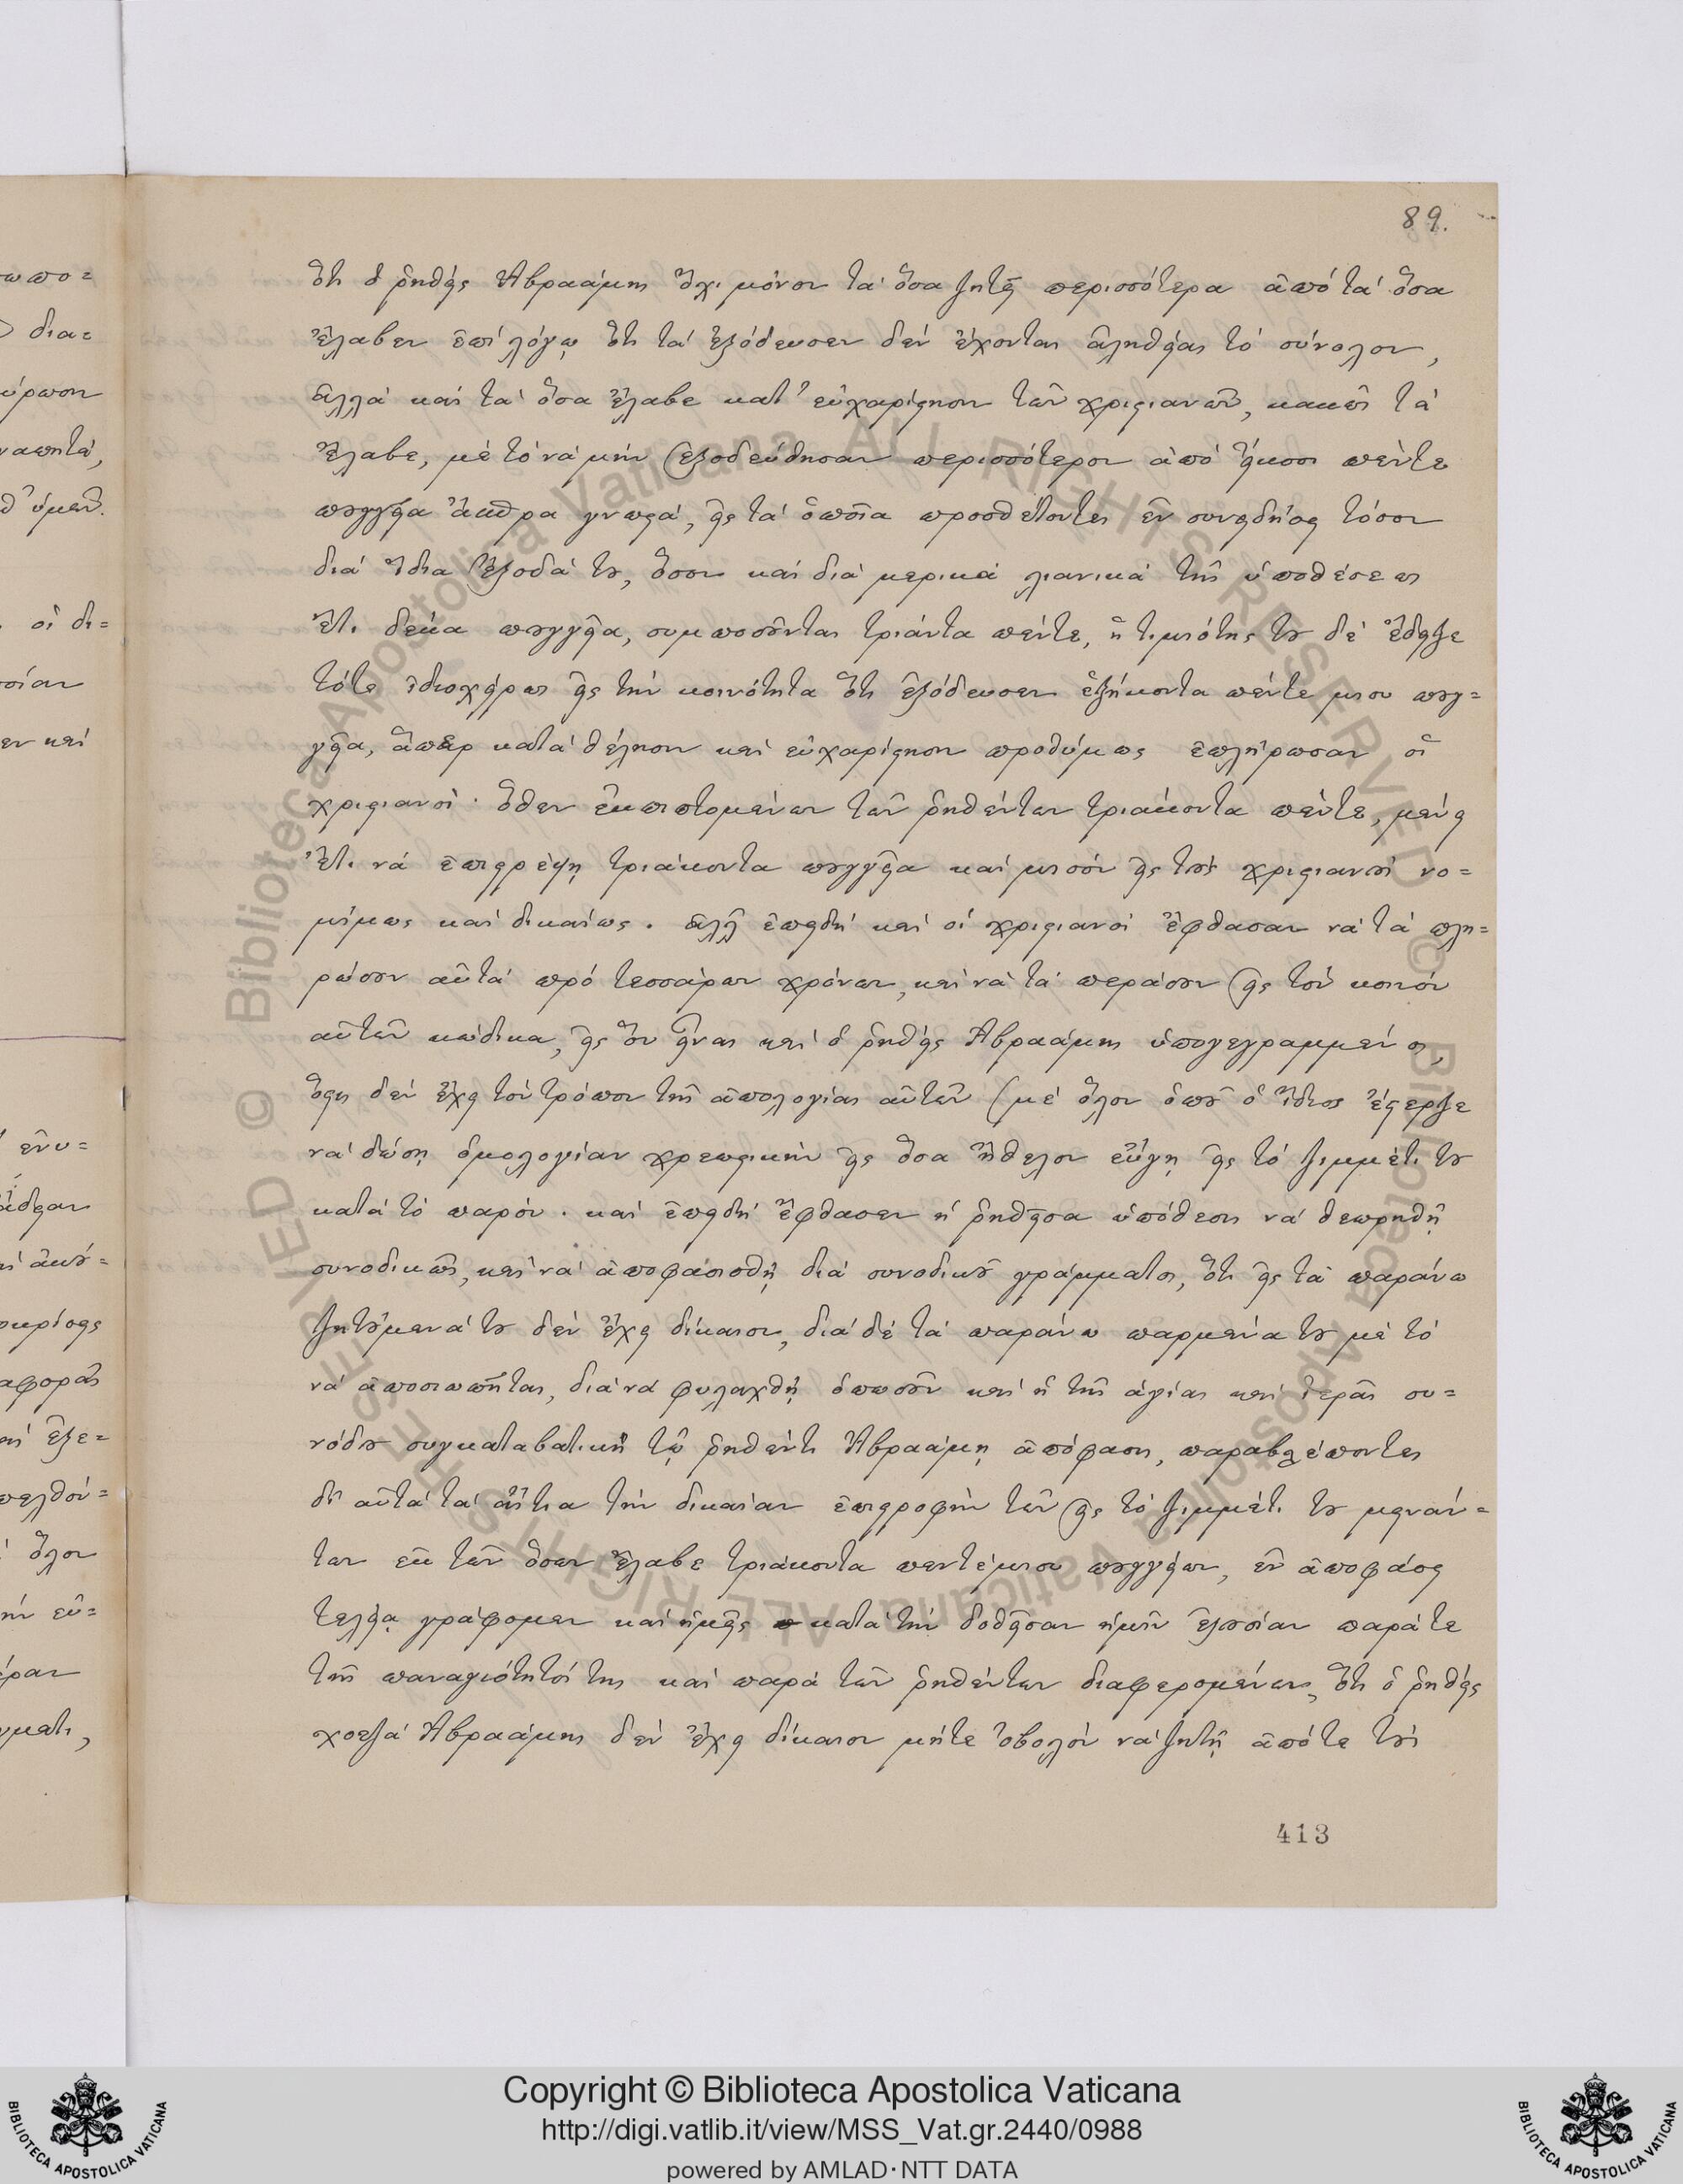 89.
ὅτι ὁ ῥηθεὶς Ἀβραάμης ὄχι μόνον τὰ ὅσα ζητεῖ περισσότερα ἀπὸ τὰ ὅσα
ἔλαβεν ἐπὶ λόγῳ ὅτι τὰ ἐξόδευσεν δὲν ἔχονται ἀληθείας τὸ σύνολον,
ἀλλὰ καὶ τὰ ὅσα ἔλαβε κατ' εὐχαρίστησιν τῶν χριστιανῶν, κακῶς τὰ
ἔλαβε, μὲ τὸ νὰ μὴν ἐξοδεύθησαν περισσότερον ἀπὸ εἴκοσι πέντε
πουγγεῖα ἄσπρα γνωστά, εἰς τὰ ὁποῖα προσθέτοντες ἐν συνειδήσει τόσον
διὰ ἴδια ἔξοδά του, ὅσον καὶ διὰ μερικὰ λιανικὰ τῆς ὑποθέσεως
ἔτι δέκα πουγγεῖα, συμποσοῦνται τριάντα πέντε, ἡ τιμιότης του δὲ ἔδειξε
τότε ἰδιοχείρως εἰς τὴν κοινότητα ὅτι ἐξόδευσεν ἑξήκοντα πέντε μισυ πουγ=
γεῖα, ἅπερ κατὰ θέλησιν καὶ εὐχαρίστησιν προθύμως ἐπλήρωσαν οἱ
χριστιανοί· ὅθεν ἐκπιπτομένων τῶν ῥηθέντων τριάκοντα πέντε, μένει
ἔτι νὰ ἐπιστρέψῃ τριάκοντα πουγγεῖα καὶ μισὸν εἰς τοὺς χριστιανοὺς νο=
μίμως καὶ δικαίως. ἀλλ' ἐπειδὴ καὶ οἱ χριστιανοὶ ἔφθασαν νὰ τὰ πλη=
ρώσουν αὐτὰ πρὸ τεσσάρων χρόνων, καὶ νὰ τὰ περάσουν εἰς τὸν κοινὸν
αὐτῶν κώδικα, εἰς ὃν εἶναι καὶ ὁ ῥηθεὶς Ἀβραάμης ὑπογεγραμμένος,
ὅστις δὲν ἔχει τὸν τρόπον τῆς ἀπολογίας αὐτῶν (μὲ ὅλον ὁποῦ ὁ ἴδιος ἔστερξε
νὰ δώσῃ ὁμολογίαν χρεωστικὴν εἰς ὅσα ἤθελον εὔγῃ εἰς τὸ ζιμμέτι του
κατὰ τὸ παρόν. καὶ ἐπειδὴ ἔφθασεν ἡ ῥηθεῖσα ὑπόθεσις νὰ θεωρηθῇ
συνοδικῶς, καὶ νὰ ἀποφασισθῇ διὰ συνοδικοῦ γράμματος, ὅτι εἰς τὰ παράνω
ζητούμενά του δὲν ἔχει δίκαιον, διὰ δὲ τὰ παράνω παρμένα του μὲ τὸ
νὰ ἀποσιωπῆται, διὰ νὰ φυλαχθῇ ὁπωσοῦν καὶ ἡ τῆς ἁγίας καὶ ἱερᾶς συ=
νόδου συγκαταβατικὴ τῷ ῥηθέντι Ἀβραάμῃ ἀπόφασις, παραβλέποντες
δι' αὐτὰ τὰ αἴτια τὴν δικαίαν ἐπιστροφὴν τῶν εἰς τὸ ζιμμέτι του μεινάν=
των ἐκ τῶν ὅσων ἔλαβε τριάκοντα πεντέμισυ πουγγείων, ἐν ἀποφάσει
τελείᾳ γράφομεν καὶ ἡμεῖς κατὰ τὴν δοθεῖσαν ἡμῖν ἐξουσίαν παρά τε
τῆς παναγιότητός της καὶ παρὰ τῶν ῥηθέντων διαφερομένων, ὅτι ὁ ῥηθεὶς
χοτζὰ Ἀβραάμης δὲν ἔχει δίκαιον μήτε ὀβολὸν νὰ ζητῇ ἀπό τε τοὺς
413
Copyright © Biblioteca Apostolica Vaticana
http://digi.vatlib.it/view/MSS_Vat.gr.2440/0988
powered by AMLAD·NTT DATA